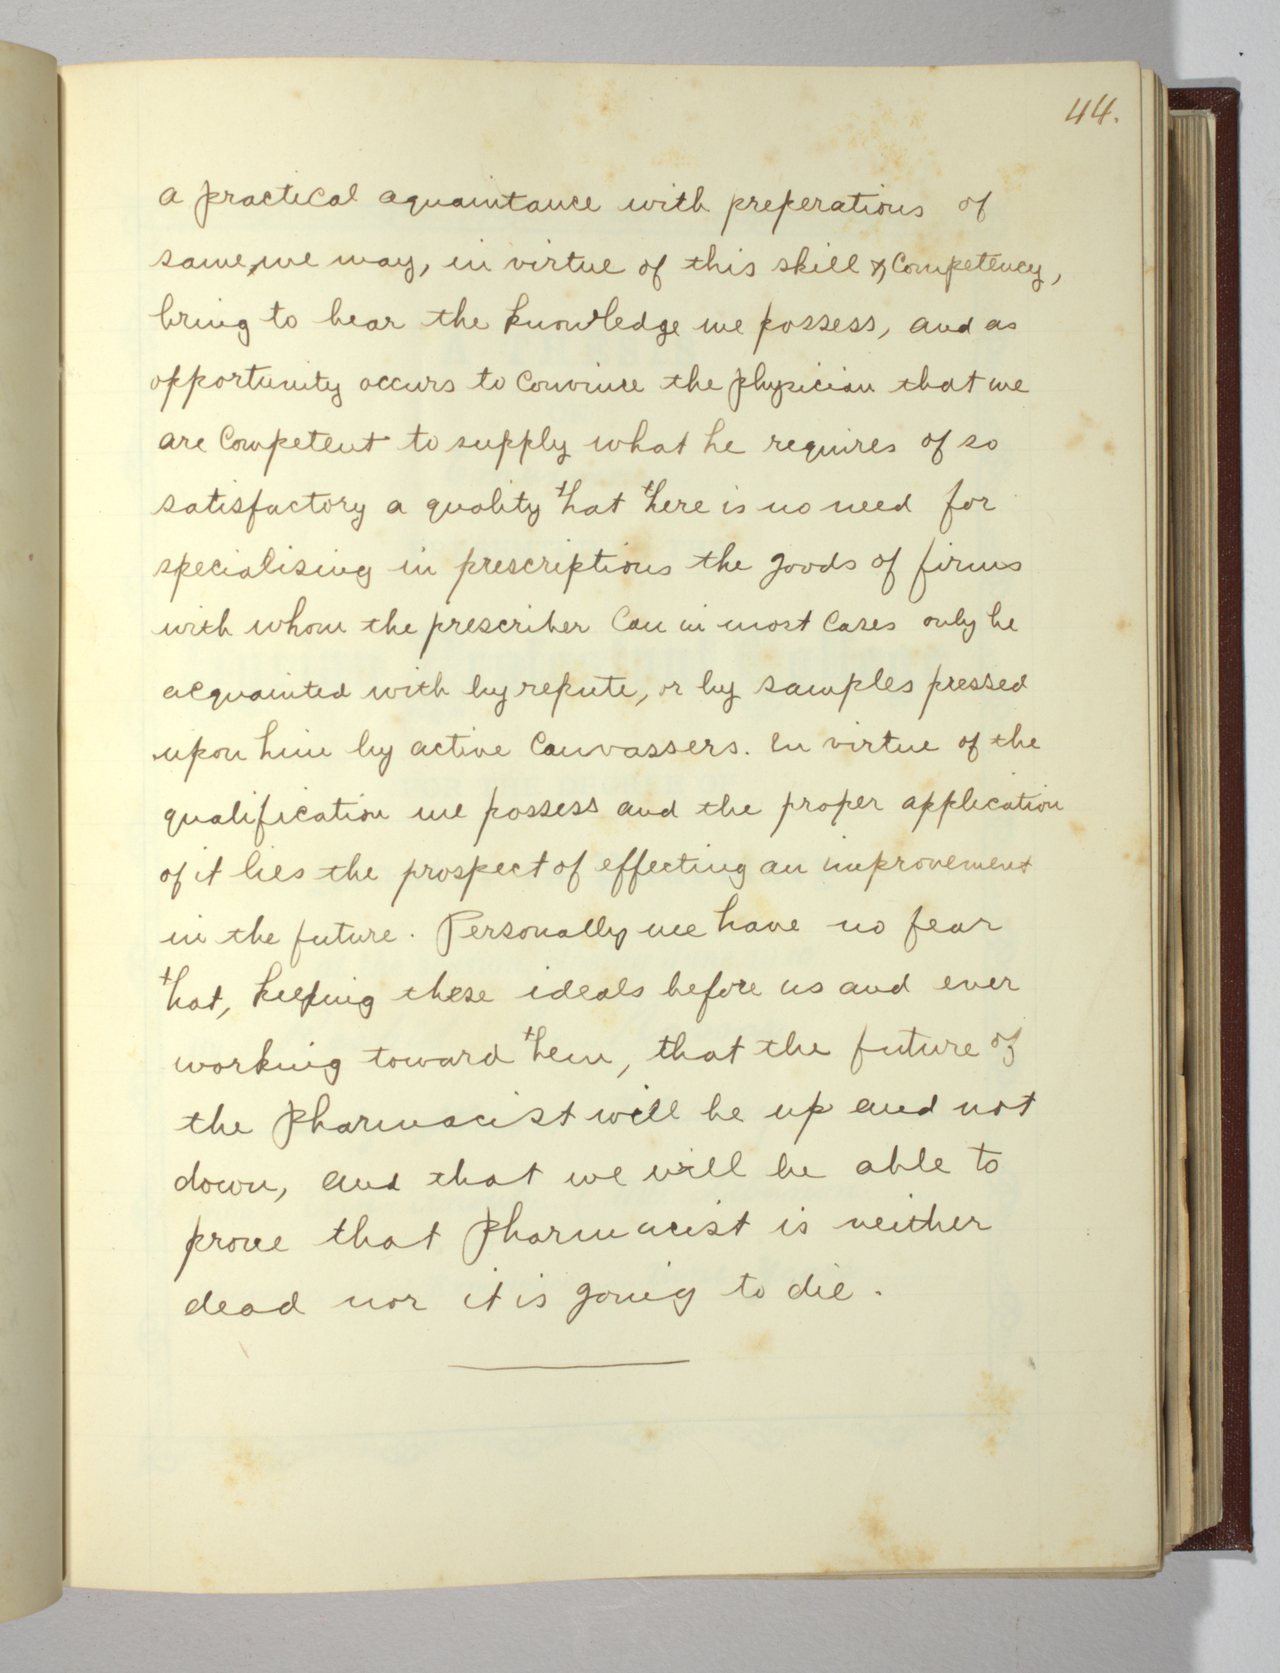 44.
a practical aquaintance with preperations of
same, we may, in virtue of this skill & Competency,
bring to bear the knowledge we possess, and as
opportunity occurs to Convince the physician that we
are Competent to supply what he requires of so
satisfactory a quality that there is no need for
specialising in prescriptions the goods of firms
with whom the prescriber Can in most Cases only be
acquainted with by repute, or by samples pressed
upon him by active Canvassers. In virtue of the
qualification we possess and the proper application
of it lies the prospect of effecting an improvement
in the future. Personally we have no fear
that, keeping these ideals before us and ever
working toward them, that the future of
the Pharmacist will be up and not
down, and that we will be able to
prove that Pharmacist is neither
dead nor it is going to die.